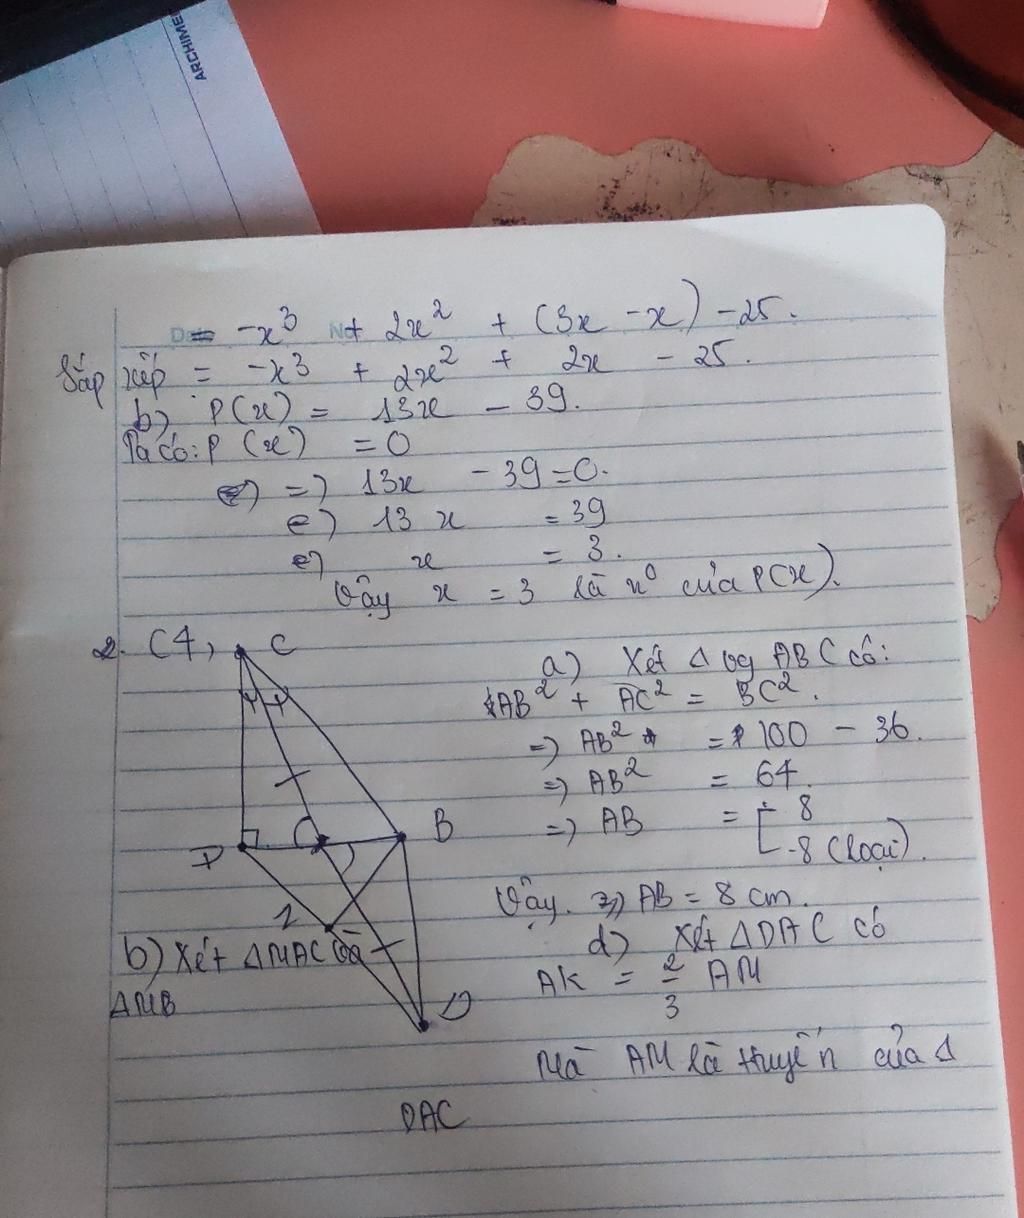 ARCHIME
= -x³ + 2x² + (3x - x) - 25.
Sắp xếp = -x³ + 2x² + 2x - 25.
b) P(x) = 13x - 39.
Ta có: P(x) = 0
=) 13x - 39 = 0.
(=) 13x = 39
(=) x = 3.
Vậy x = 3 là n⁰ của P(x).
2. C4,
C
B
D
a) Xét Δ vg ABC có:
AB² + AC² = BC².
=) AB² = 100 - 36.
=) AB² = 64.
=) AB = [ 8
-8 (loại).
Vậy. =) AB = 8 cm.
b) Xét ΔMAC và
ΔMB
d) Xét ΔDAC có
AK = 2/3 AM
Mà AM là tuyến của Δ
DAC